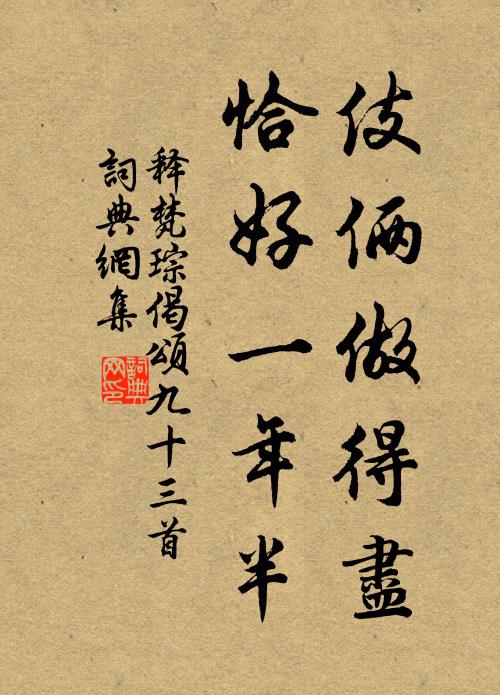 伎倆做得盡
恰好一年半
释梵琮偈頌九十三首
詞典網集
詞典网印